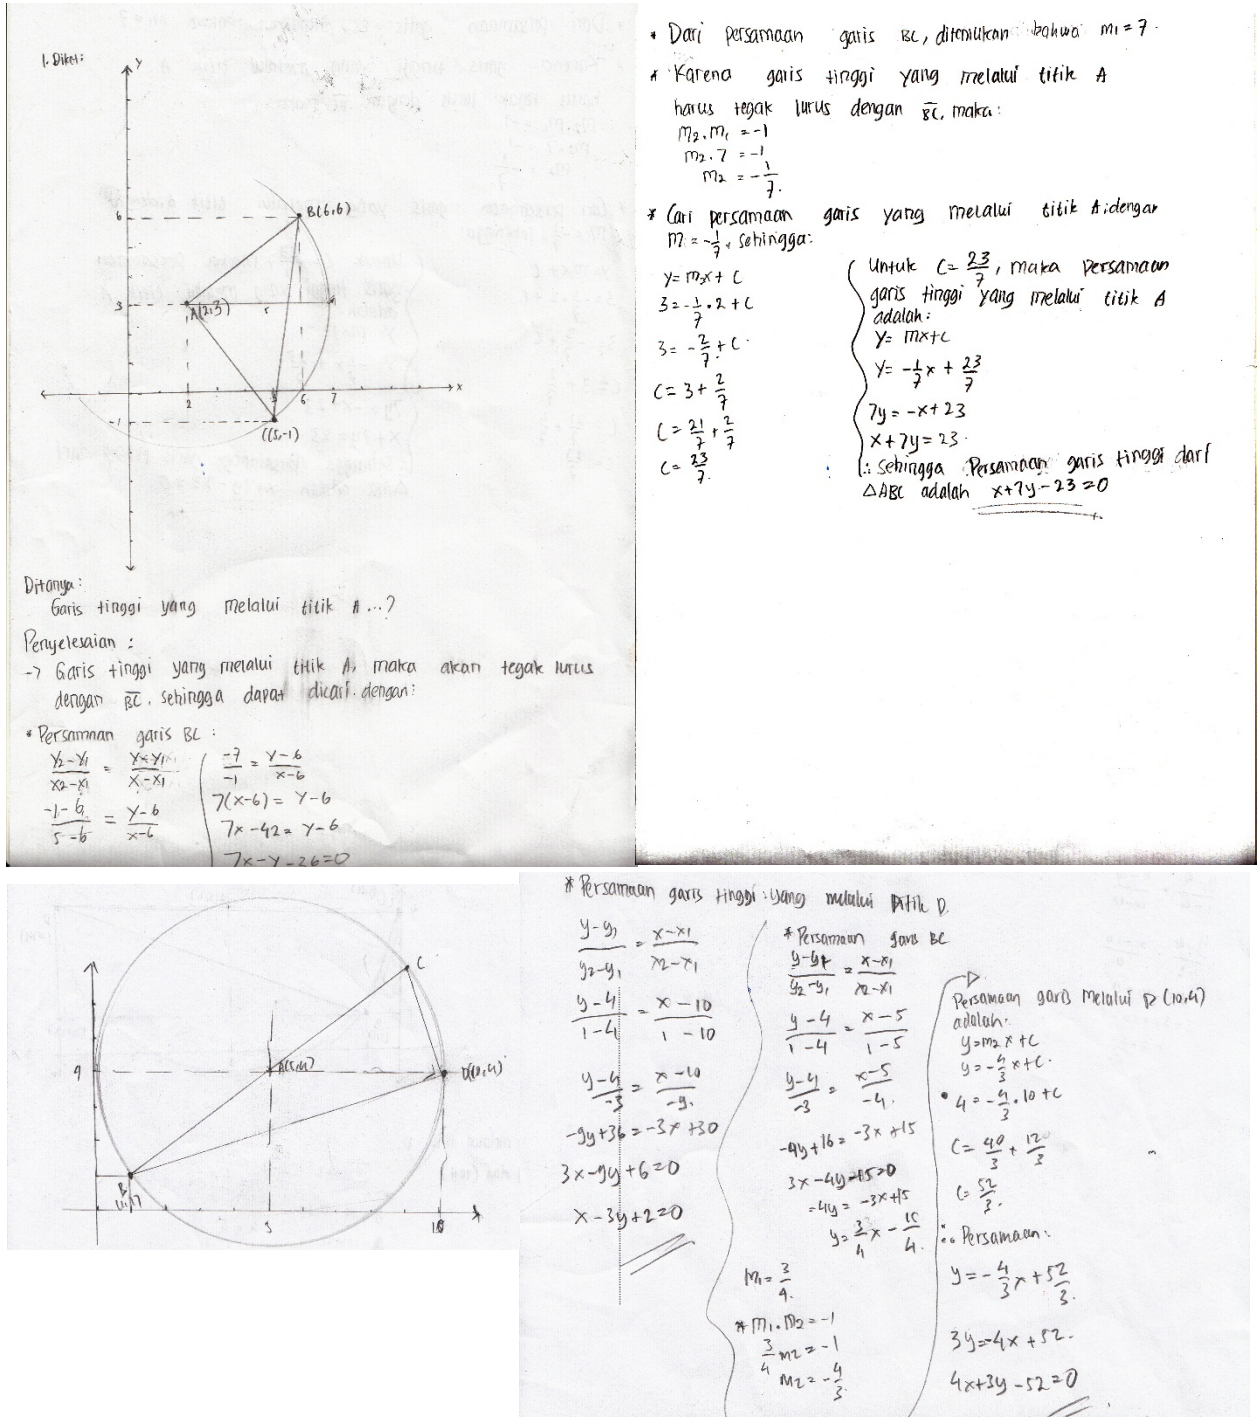 1. Diket:
Y
6
B(6,6)
3
A(2,3)
r
X
2
5
6
7
-1
C(5,-1)
Ditanya:
Garis tinggi yang melalui titik A...?
Penyelesaian :
-> Garis tinggi yang melalui titik A, maka akan tegak lurus
dengan BC, sehingga dapat dicari dengan:
* Persamaan garis BC :
y2-y1/x2-x1 = y-y1/x-x1
-1-6/5-6 = y-6/x-6
-7/-1 = y-6/x-6
7(x-6) = y-6
7x-42 = y-6
7x-y-36=0
* Dari persamaan garis BC, ditemukan bahwa m1 = 7.
* Karena garis tinggi yang melalui titik A
harus tegak lurus dengan BC, maka:
m2.m1 = -1
m2.7 = -1
m2 = -1/7.
* Cari persamaan garis yang melalui titik A dengan
m = -1/7, sehingga:
y = m2x + c
3 = -1/7.2 + c
3 = -2/7 + c.
c = 3 + 2/7
c = 21/7 + 2/7
c = 23/7.
Untuk c = 23/7, maka persamaan
garis tinggi yang melalui titik A
adalah:
y = mx+c
y = -1/7x + 23/7
7y = -x+23
x+7y = 23.
∴ sehingga persamaan garis tinggi dari
△ABC adalah x+7y-23=0
C
4
A(5,4)
D(10,4)
B
(1,1)
5
10
x
* Persamaan garis tinggi yang melalui titik D.
y-y1/y2-y1 = x-x1/x2-x1
y-4/1-4 = x-10/1-10
y-4/-3 = x-10/-9.
-9y+36 = -3x+30
3x-9y+6=0
x-3y+2=0
* Persamaan garis BC
y-y1/y2-y1 = x-x1/x2-x1
y-4/1-4 = x-5/1-5
y-4/-3 = x-5/-4.
-4y+16 = -3x+15
-4y = -3x+15
m1 = 3/4.
* m1.m2 = -1
3/4 m2 = -1
m2 = -4/3.
Persamaan garis melalui D (10,4)
adalah:
y = m2x+c
y = -4/3x+c.
4 = -4/3.10+c
c = 40/3 + 12/3
c = 52/3.
∴ Persamaan:
y = -4/3x + 52/3.
3y = -4x + 52.
4x+3y-52=0